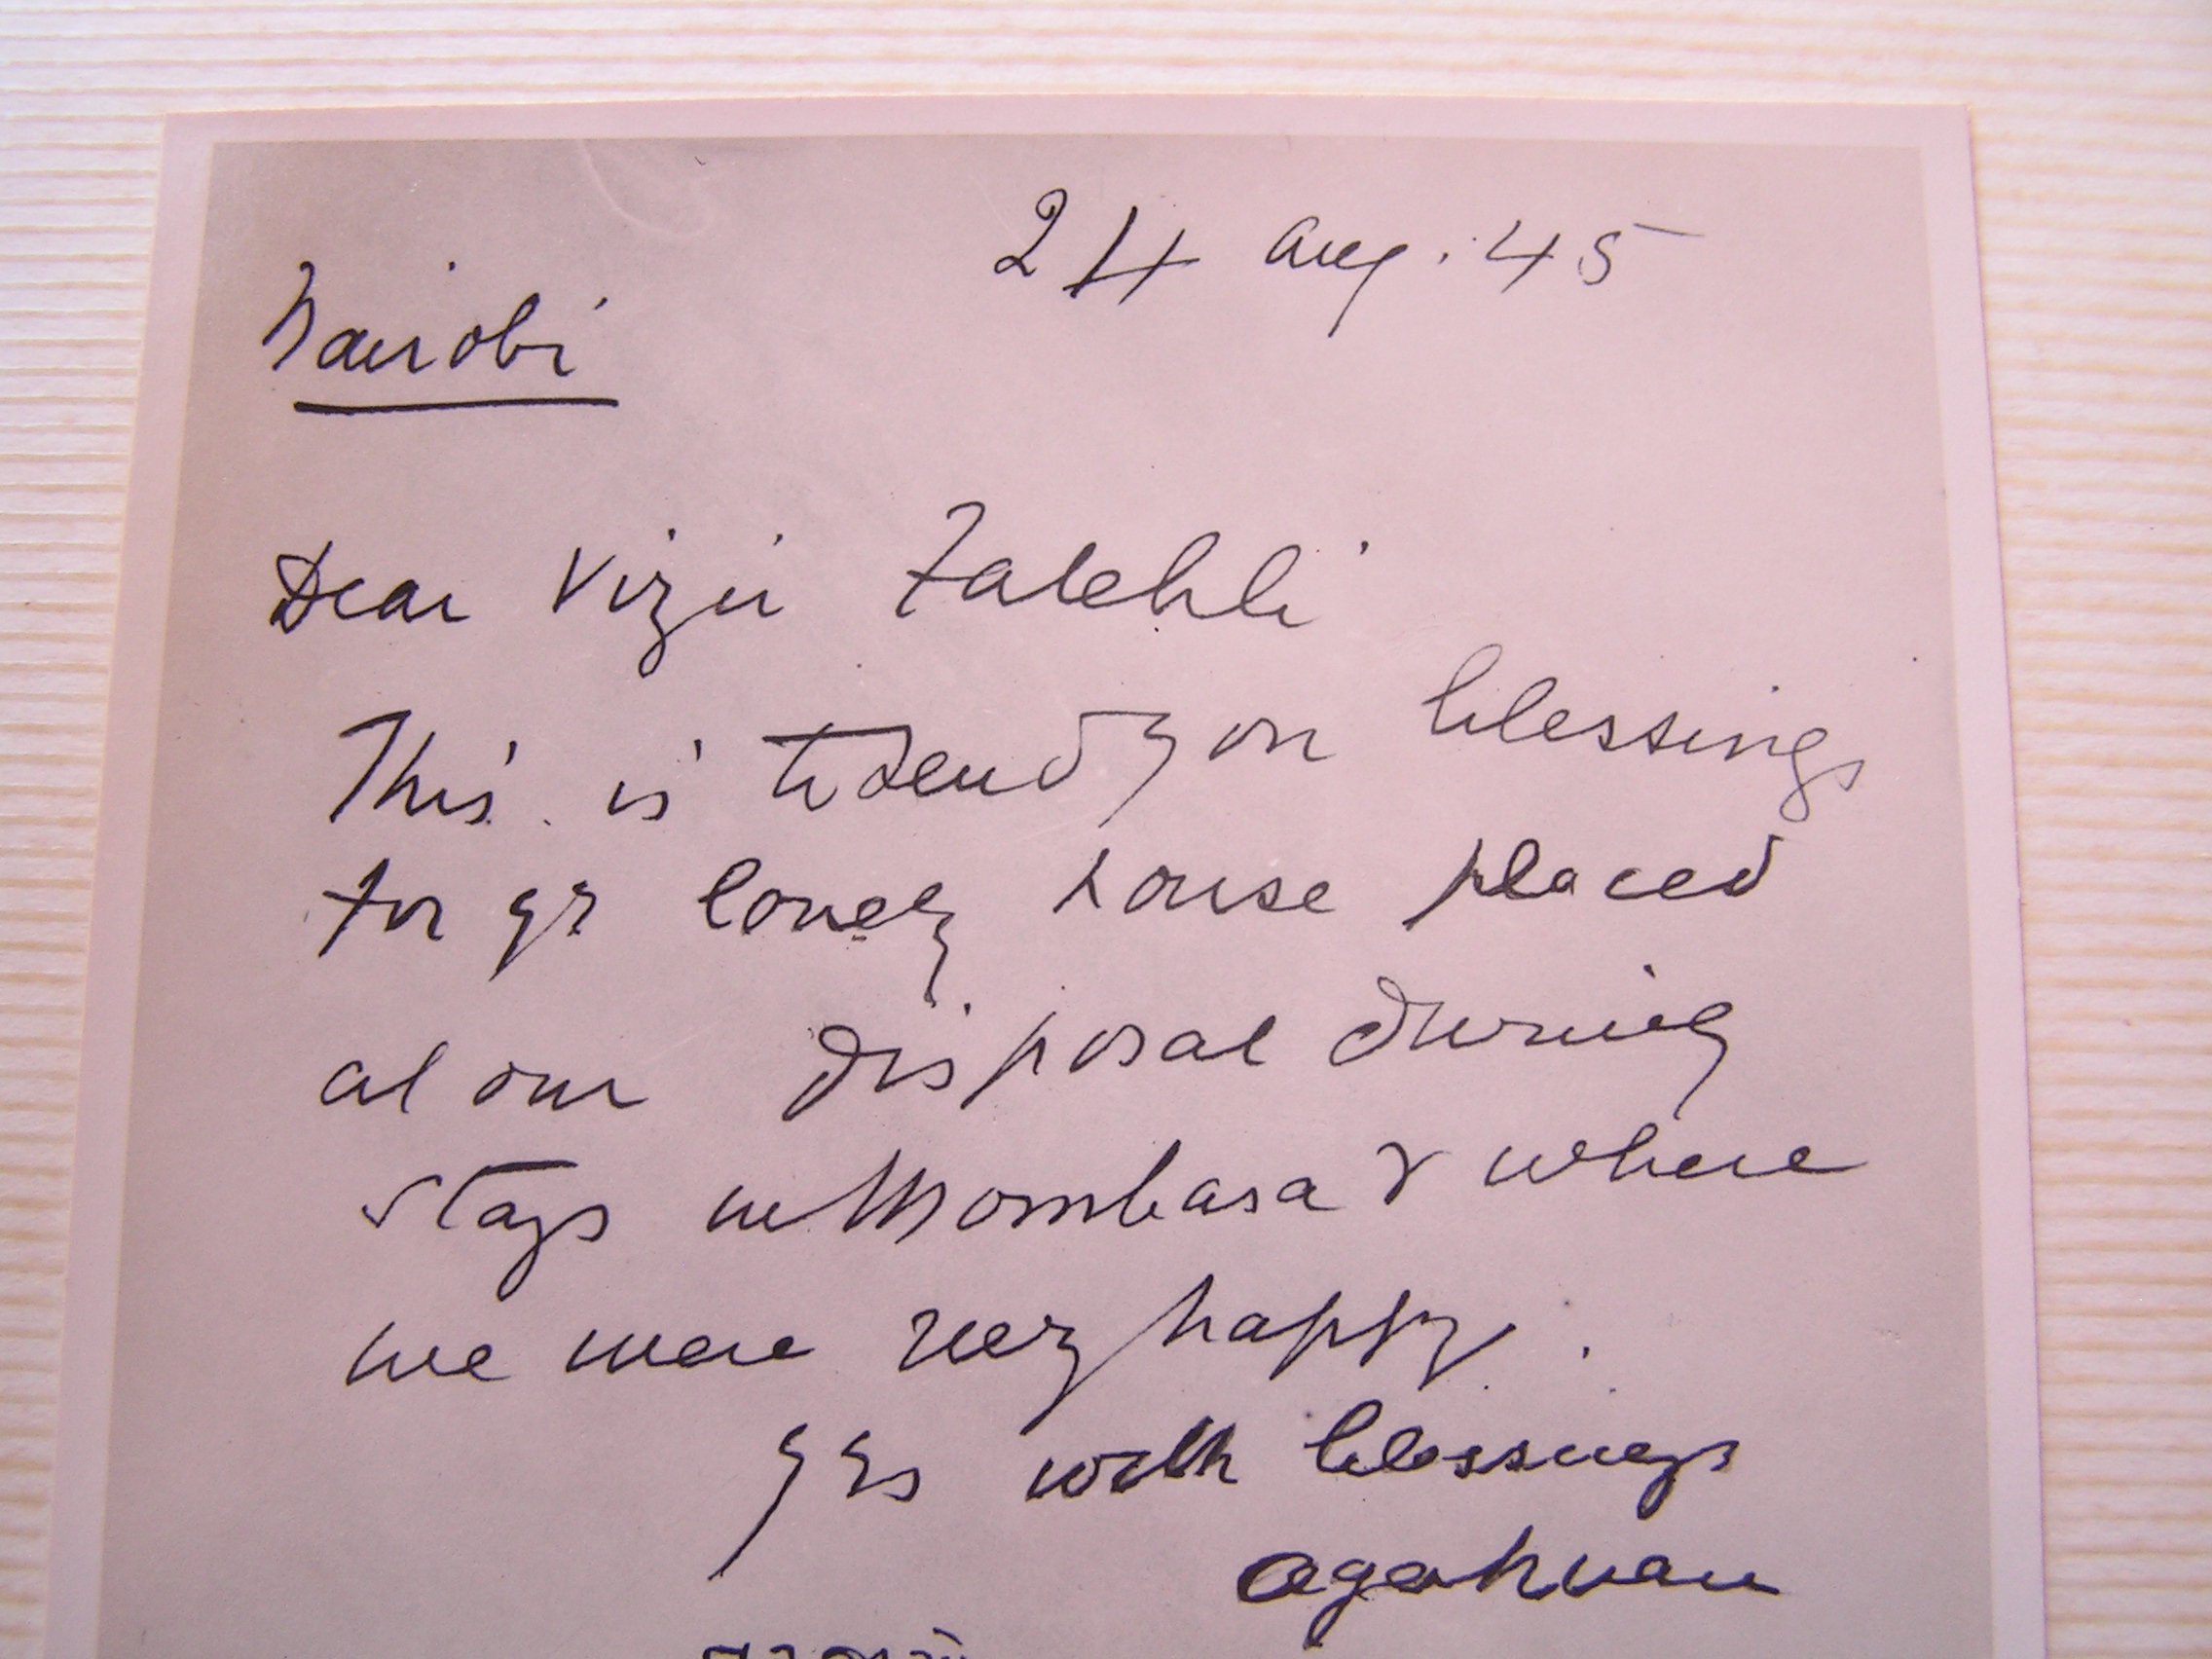 24 Aug. 45
Nairobi
Dear Vizir Fatehli
This is to send you blessings
for yr lovely house placed
at our disposal during
stays in Mombasa & where
we were very happy.
Yrs with blessings
Agakhan